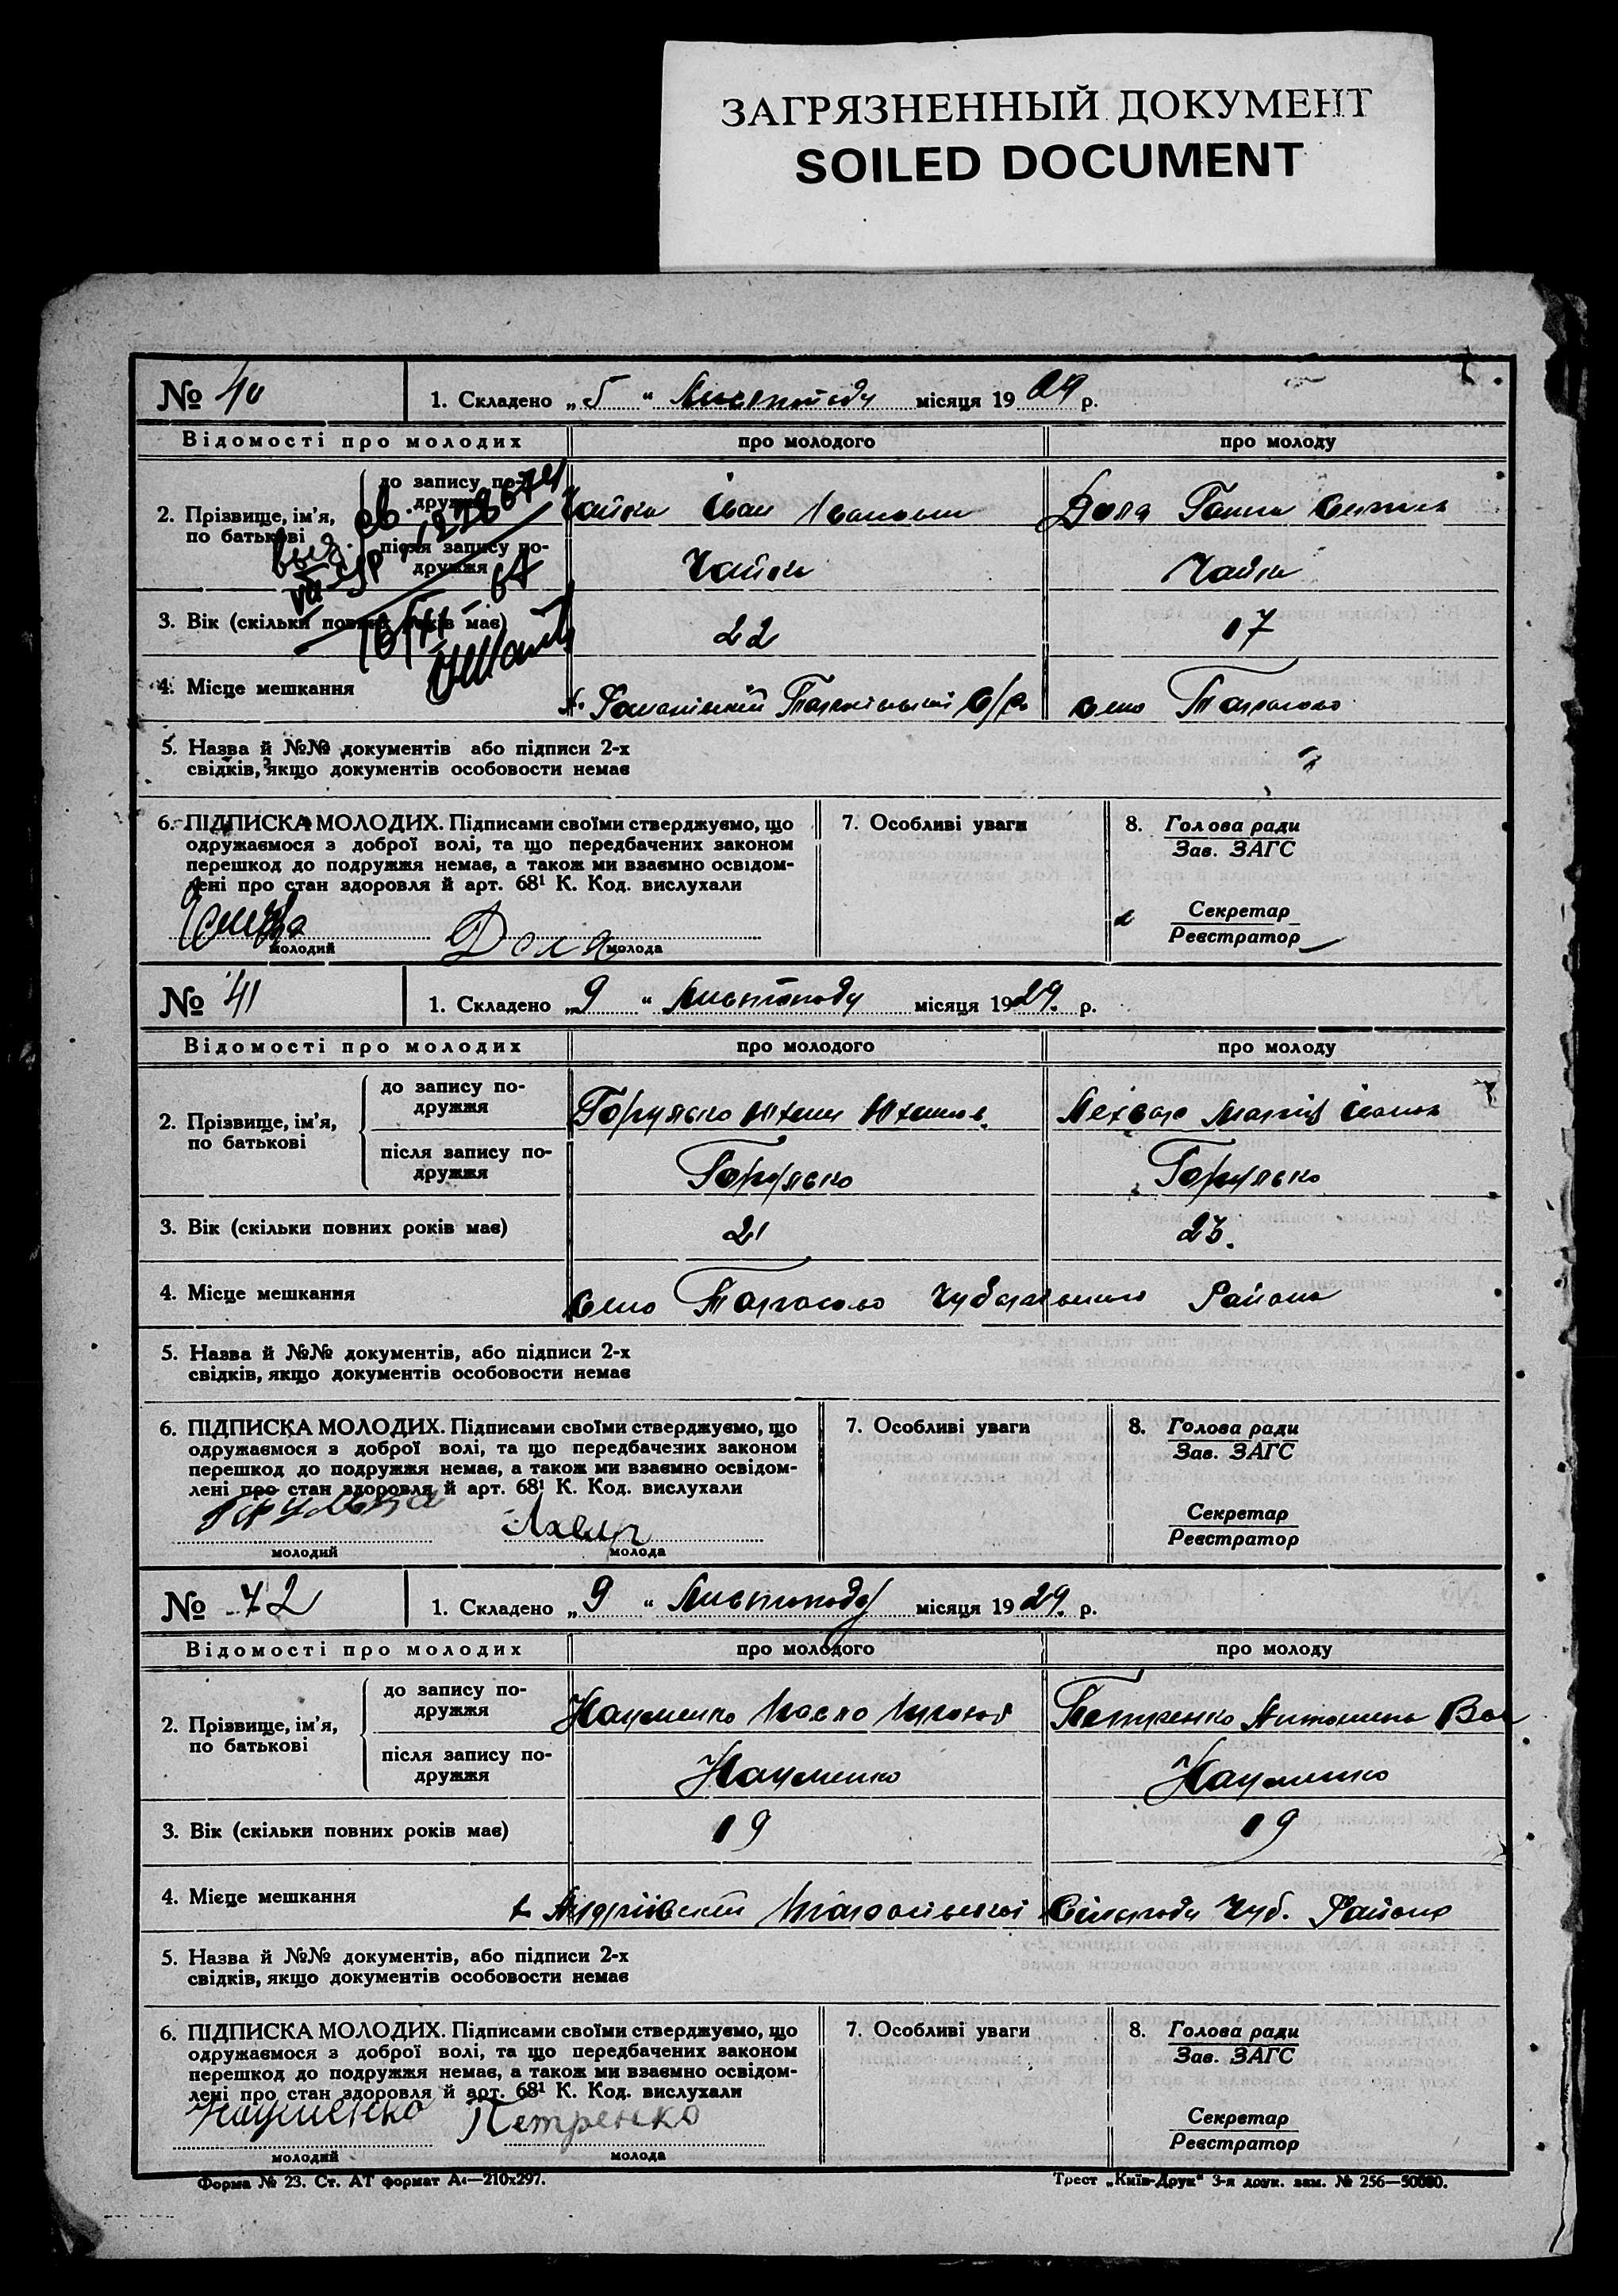 ЗАГРЯЗНЕННЫЙ ДОКУМЕНТ
SOILED DOCUMENT
№ 40
1. Складено „5“ Листопаду місяця 1929 р.
Відомості про молодих
про молодого
про молоду
2. Прізвище, ім'я, по батькові
до запису по-
дружжя
Чайка Іван Іванович
Доля Ганна
після запису по-
дружжя
Чайка
Чайка
3. Вік (скільки повних років має)
22
17
4. Місце мешкання
с/р село Тарасово
5. Назва й №№ документів або підписи 2-х
свідків, якщо документів особовости немає
6. ПІДПИСКА МОЛОДИХ. Підписами своїми стверджуємо, що
одружаємося з доброї волі, та що передбачених законом
перешкод до подружжя немає, а також ми взаємно освідом-
лені про стан здоровля й арт. 68¹ К. Код. вислухали
Доля
молодий
молода
7. Особливі уваги
8. Голова ради
Зав. ЗАГС
Секретар
Реєстратор
№ 41
1. Складено „9“ Листопаду місяця 1929. р.
Відомості про молодих
про молодого
про молоду
2. Прізвище, ім'я,
по батькові
до запису по-
дружжя
Горулько
Марія Іванов
після запису по-
дружжя
Горулько
Горулько
3. Вік (скільки повних років має)
21
23.
4. Місце мешкання
село Тарасово Району
5. Назва й №№ документів, або підписи 2-х
свідків, якщо документів особовости немає
6. ПІДПИСКА МОЛОДИХ. Підписами своїми стверджуємо, що
одружаємося з доброї волі, та що передбачених законом
перешкод до подружжя немає, а також ми взаємно освідом-
лені про стан здоровля й арт. 68¹ К. Код. вислухали
молодий
молода
7. Особливі уваги
8. Голова ради
Зав. ЗАГС
Секретар
Реєстратор
№ 42
1. Складено „9“ Листопаду місяця 1929. р.
Відомості про молодих
про молодого
про молоду
2. Прізвище, ім'я,
по батькові
до запису по-
дружжя
Науменко Павло
Петренко Антонина Вас
після запису по-
дружжя
Науменко
Науменко
3. Вік (скільки повних років має)
19
19
4. Місце мешкання
х Андріївський Сільради Чуб. Району
5. Назва й №№ документів, або підписи 2-х
свідків, якщо документів особовости немає
6. ПІДПИСКА МОЛОДИХ. Підписами своїми стверджуємо, що
одружаємося з доброї волі, та що передбачених законом
перешкод до подружжя немає, а також ми взаємно освідом-
лені про стан здоровля й арт. 68¹ К. Код. вислухали
Науменко Петренко
молодий
молода
7. Особливі уваги
8. Голова ради
Зав. ЗАГС
Секретар
Реєстратор
Форма № 23. Ст. АТ формат А4—210х297.
Трест „Київ-Друк“ 3-я друк. зам. № 256—50000.